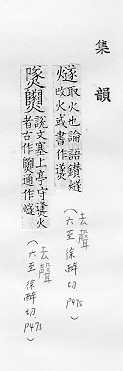 集韻
燧取火也論語鑽燧
改火或書作
(去聲
六至徐醉切
P475)
說文塞上亭守烽火
者古作通作燧
(去聲
六至徐醉切
P475)